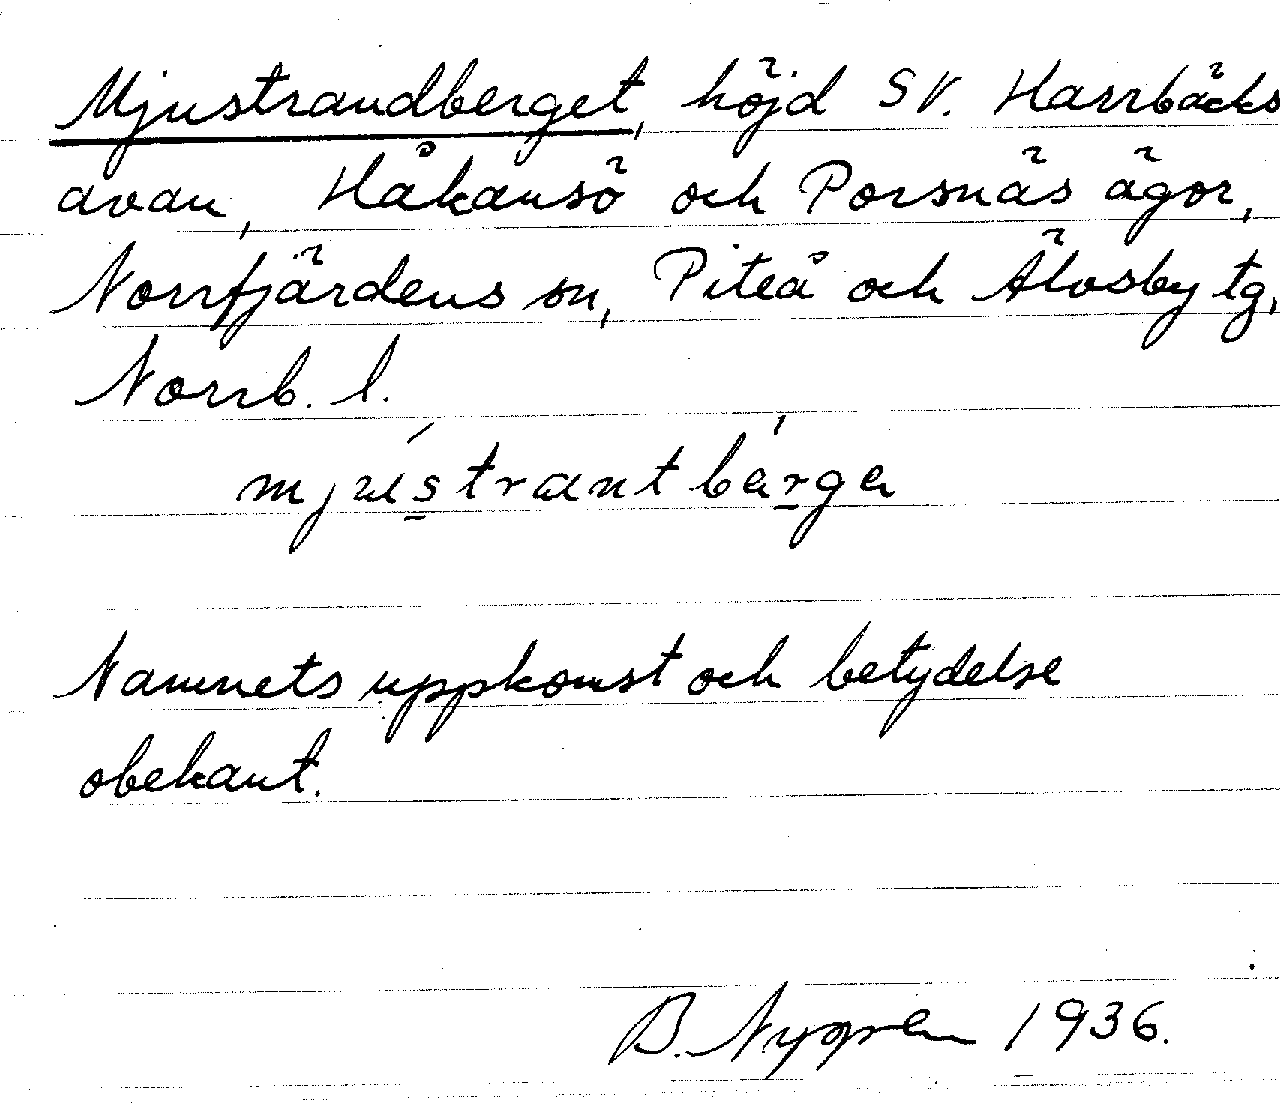 Mjustrandberget, höjd SV. Harrbäcks
avan, Håkansö och Porsnäs ägor,
Norrfjärdens sn, Piteå och Älvsby tg,
Norrb. l.
mjústrantbárga
Namnets uppkomst och betydelse
obekant.
B. Nygren 1936.